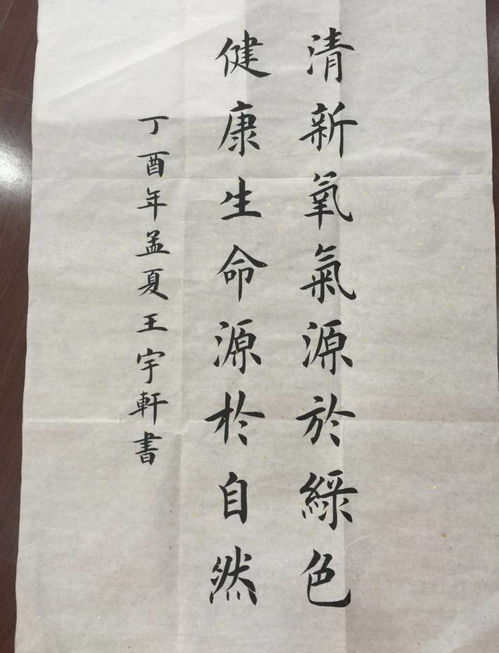 清新氧氣源於綠色
健康生命源於自然
丁酉年孟夏王宇軒書